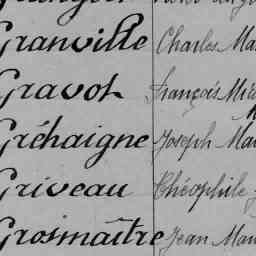 Granville Charles
Gravot François
Gréhaigne Joseph
Griveau Théophile
Grosmaître Jean